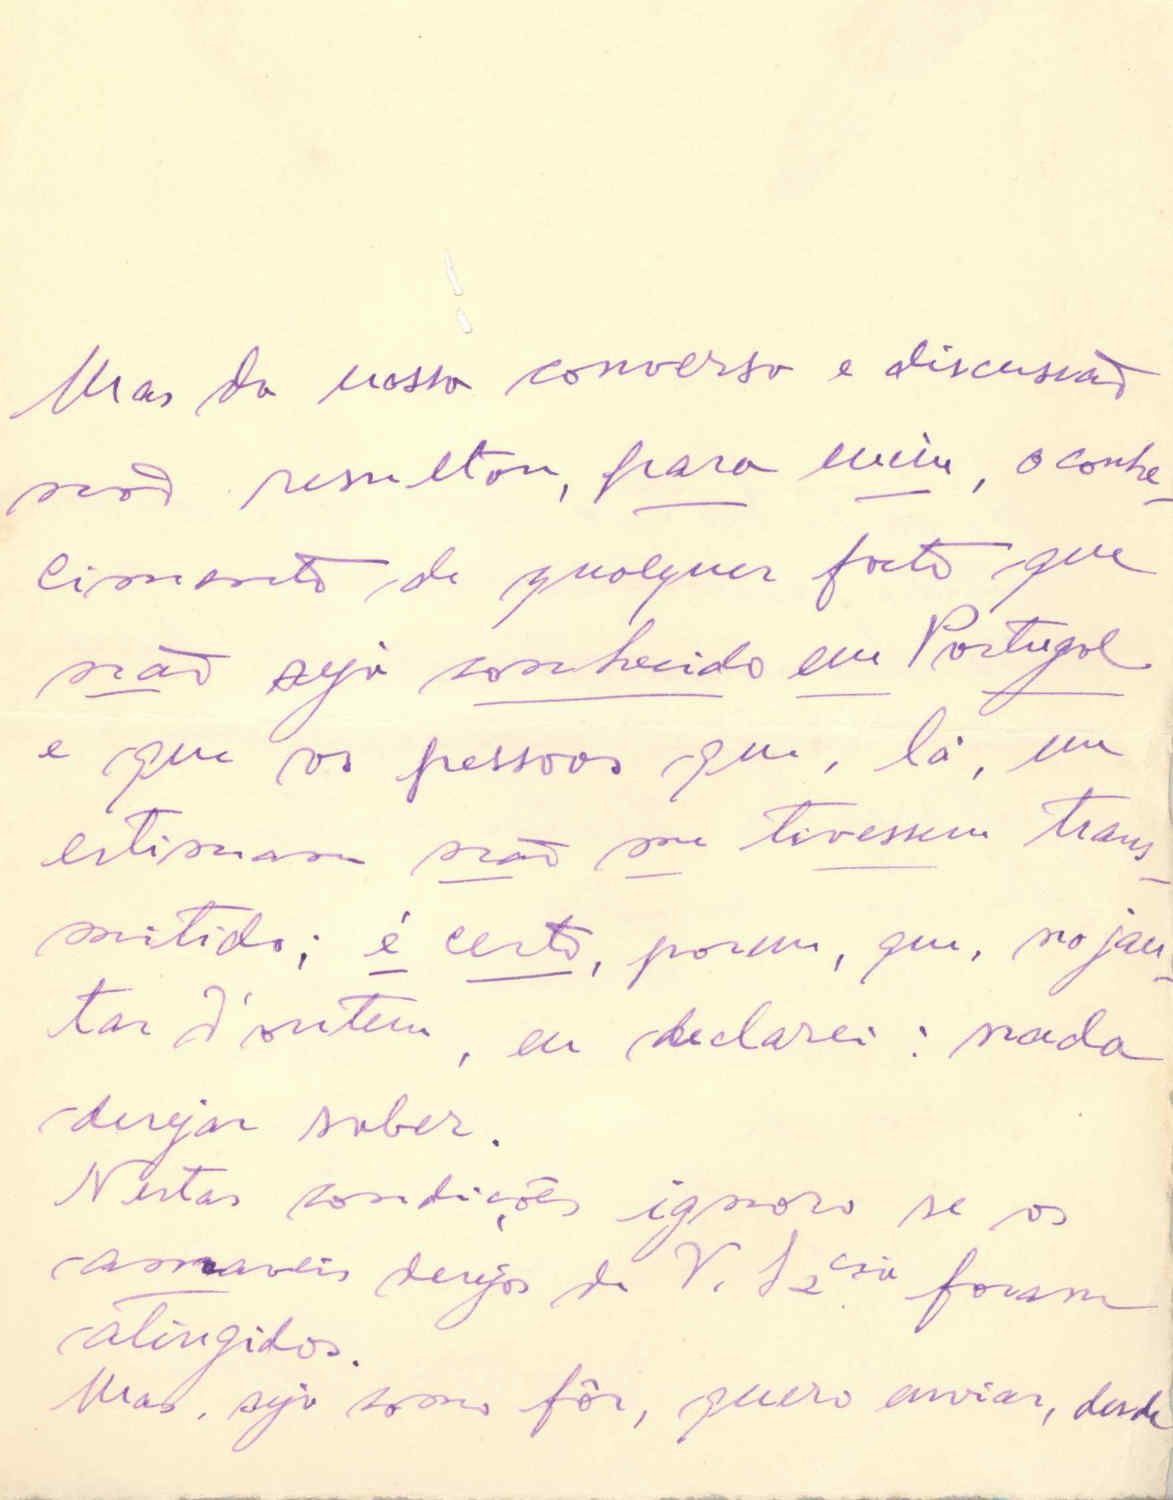 Mas da nossa conversa e discussão
não resultou, para mim, o conhe-
cimento de qualquer facto que
não seja conhecido em Portugal
e que as pessoas que, lá, me
estimam não me tivessem trans-
mitido; é certo, porem, que, no jan-
tar d'ontem, eu declarei: nada
desejar saber.
Nestas condições ignoro se os
amaveis desejos de V. foram
atingidos.
Mas, seja como fôr, quero enviar, desde